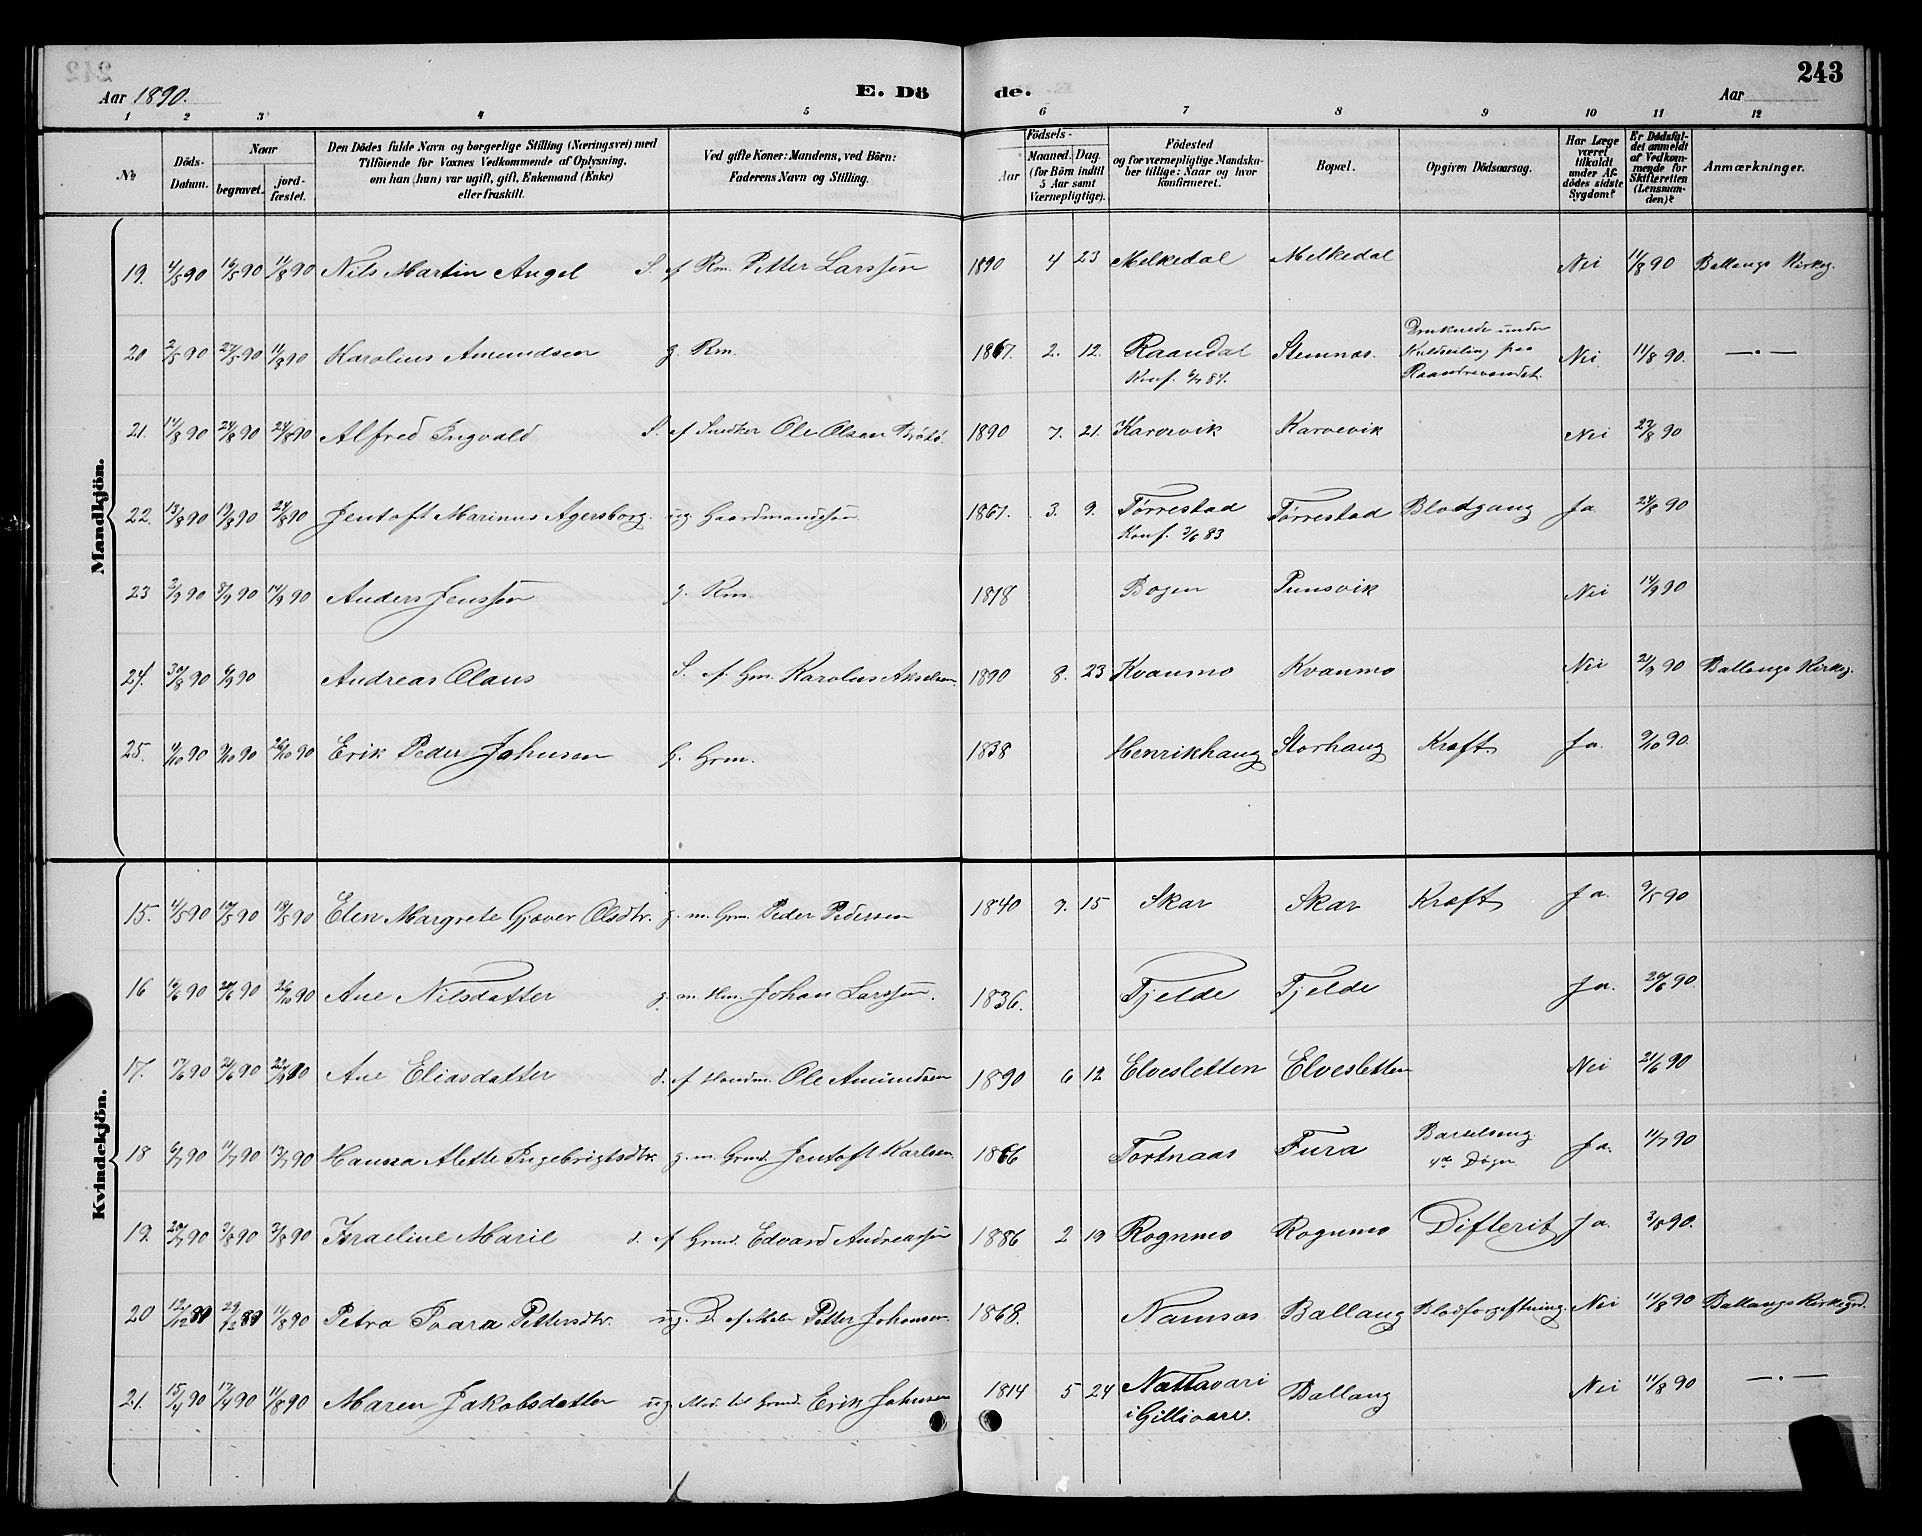 243
Aar 1890.
E. Dö
de.
Aar
1 2 3 4 5 6 7 8 9 10 11 12
№
Döds-Datum.
Naar
begravet.
jord-fæstet.
Den Dödes fulde Navn og borgerlige Stilling (Næringsvei) med
Tilföiende for Voxnes Vedkommende af Oplysning,
om han (hun) var ugift, gift, Enkemand (Enke)
eller fraskilt.
Ved gifte Koner: Mandens, ved Börn:
Faderens Navn og Stilling.
Födsels-
Aar
Maaned. Dag.
(for Börn indtil
5 Aar samt
Værnepligtige).
Födested
og for værnepligtige Mandska-
ber tillige: Naar og hvor
konfirmeret.
Bopæl.
Opgiven Dödsaarsag.
Har Læge
været
tilkaldt
under Af-
dödes sidste
Sygdom?
Er Dödsfal-
det anmeldt
af Vedkom-
mende for
Skifteretten
(Lensman-
den)?
Anmærkninger.
Mandkjön.
19. 4/5 90 16/5 90 11/8 90 Nils Martin Angel S. af Rm. Petter Larssen 1890 4 23 Melkedal Melkedal Nei 11/8 90 Ballangs Kirkeg.
20 2/5 90 27/5 90 11/8 90 Karolius Amundsen g. Rm. 1867. 2. 12. Raandal Stemnæs. Druknede under Nei 11/8 90. —.—
Konf. 6/7 84. Kuldseiling paa
Raandrevandet.
21. 14/8 90 24/8 90 24/8 90 Alfred Ingvald S. af Snedker Ole Olsen 1890 7. 21. Karvevik Karvevik Nei 27/8 90
22. 13/8 90 19/8 90 24/8 90 Jentoft Marinus Agersborg. ug. Gaardmandssøn 1867. 3. 9. Tørrestad Tørrestad Blodgang Ja 24/8 90
Konf. 3/6 83
23 2/9 90 8/9 90 14/9 90 Anders Jenssen g. Rm. 1818 Bogen Punsvik Nei 14/9 90
24. 30/8 90 6/9 90 Andreas Olaus S. af Gm. Karolus Akselsen. 1890 8. 23 Kvanmo Kvanmo Nei 21/9 90 Ballangs Kirkeg.
25. 4/10 90 9/10 90 26/10 90 Erik Peder Johnsen G. Grm. 1838 Henrikhaug Storhaug Kræft. Ja. 9/10 90.
Kvindekjön.
15. 11/5 90 17/5 90 18/5 90 Elen Margrete Gjøver Olsdtr. g. m. Grm. Peder Pedersen 1840 9. 15 Skar Skar Kræft Ja. 9/5 90
16 14/6 90 20/6 90 26/10 90 Ane Nilsdatter g. m. Hm. Johan Larssen. 1836. Fjelde Fjelde Ja. 20/6 90.
17. 17/6 90 21/6 90 22/9 90 Ane Eliasdatter d. af Handm. Ole Amundsen 1890 6 12 Elvesletten Elvesletten Nei 21/6 90
18 6/7 90 11/7 90 13/7 90 Hanna Alette Ingebrigtsdtr. g. m. Grmd. Jentoft Karlsen. 1866 Tortnaas Fura Barselseng Ja. 11/7 90
4de Døgn
19. 20/7 90 3/8 90 3/8 90 Israeline Marie d. af Grmd. Edvard Andreassen 1886 2 19 Rognmo Rognmo Difterit Ja. 3/8 90.
20 12/12 89 29/12 89 11/8 90 Petra Ivara Pettersdtr. ug. D. af Maler Petter Johansen. 1868. Namsos Ballang Blodforgiftning Nei 11/8 90 Ballangs Kirkegrd.
21. 15/4 90 17/4 90 11/8 90 Maren Jakobsdatter ug Mor til Grmd. Erik Johnsen 1814 5 24 Nattavari Ballang Nei 11/8 90 —.—
i Gillivare.